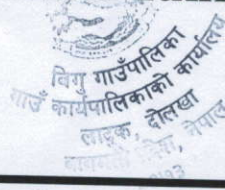 विगु गाउँपालिका
गाउँ कार्यपालिकाको कार्यालय
लादुक, दोलखा
नेपाल